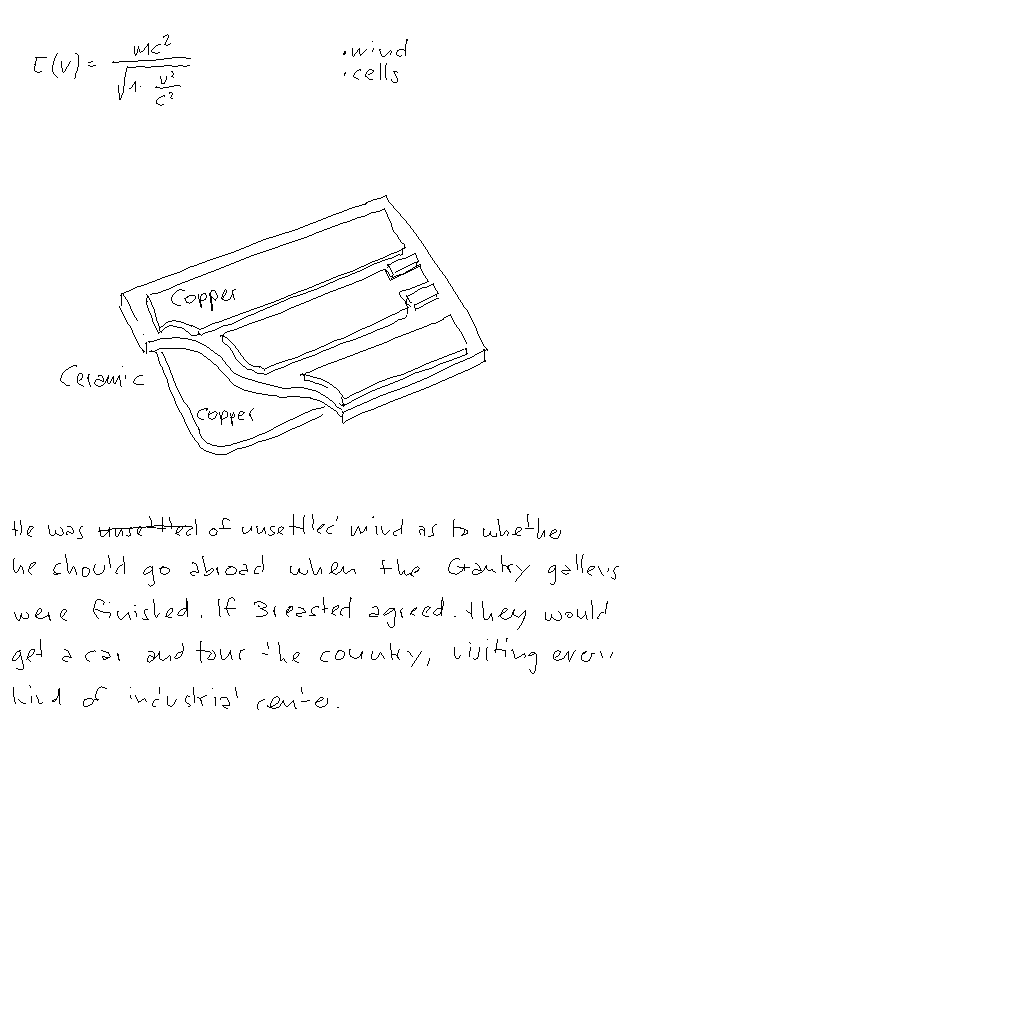 E(v) = mc² / √1 - v²/c²
• wind
• cells
Copper
Ceramic
Copper
He was unsettled of unsettled mind as to whether
he should go abroad when the Gantry galleris
were finished. If Breasted agreed. they would
get a car and tour the country, visiting every
kind of industrial centre.